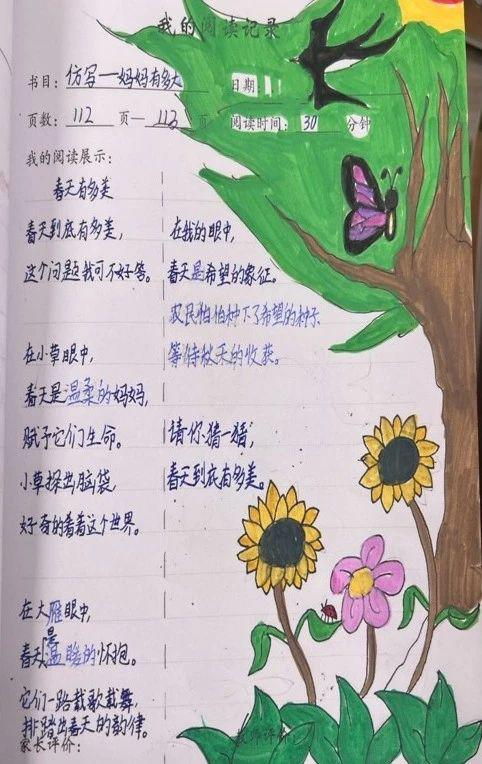 我的阅读记录
书目：仿写—妈妈有多大
日期
页数：112 页—113 页
阅读时间：30 分钟
我的阅读展示：
春天有多美
春天到底有多美，
这个问题我可不好答。
在小草眼中，
春天是温柔的妈妈，
赋予它们生命。
小草探出脑袋，
好奇的看着这个世界。
在大雁眼中，
春天是温暖的怀抱。
它们一路载歌载舞，
排踏出春天的韵律。
在我的眼中，
春天是希望的象征。
农民伯伯种下了希望的种子
等待秋天的收获。
请你猜一猜，
春天到底有多美。
家长评价：
教师评价：